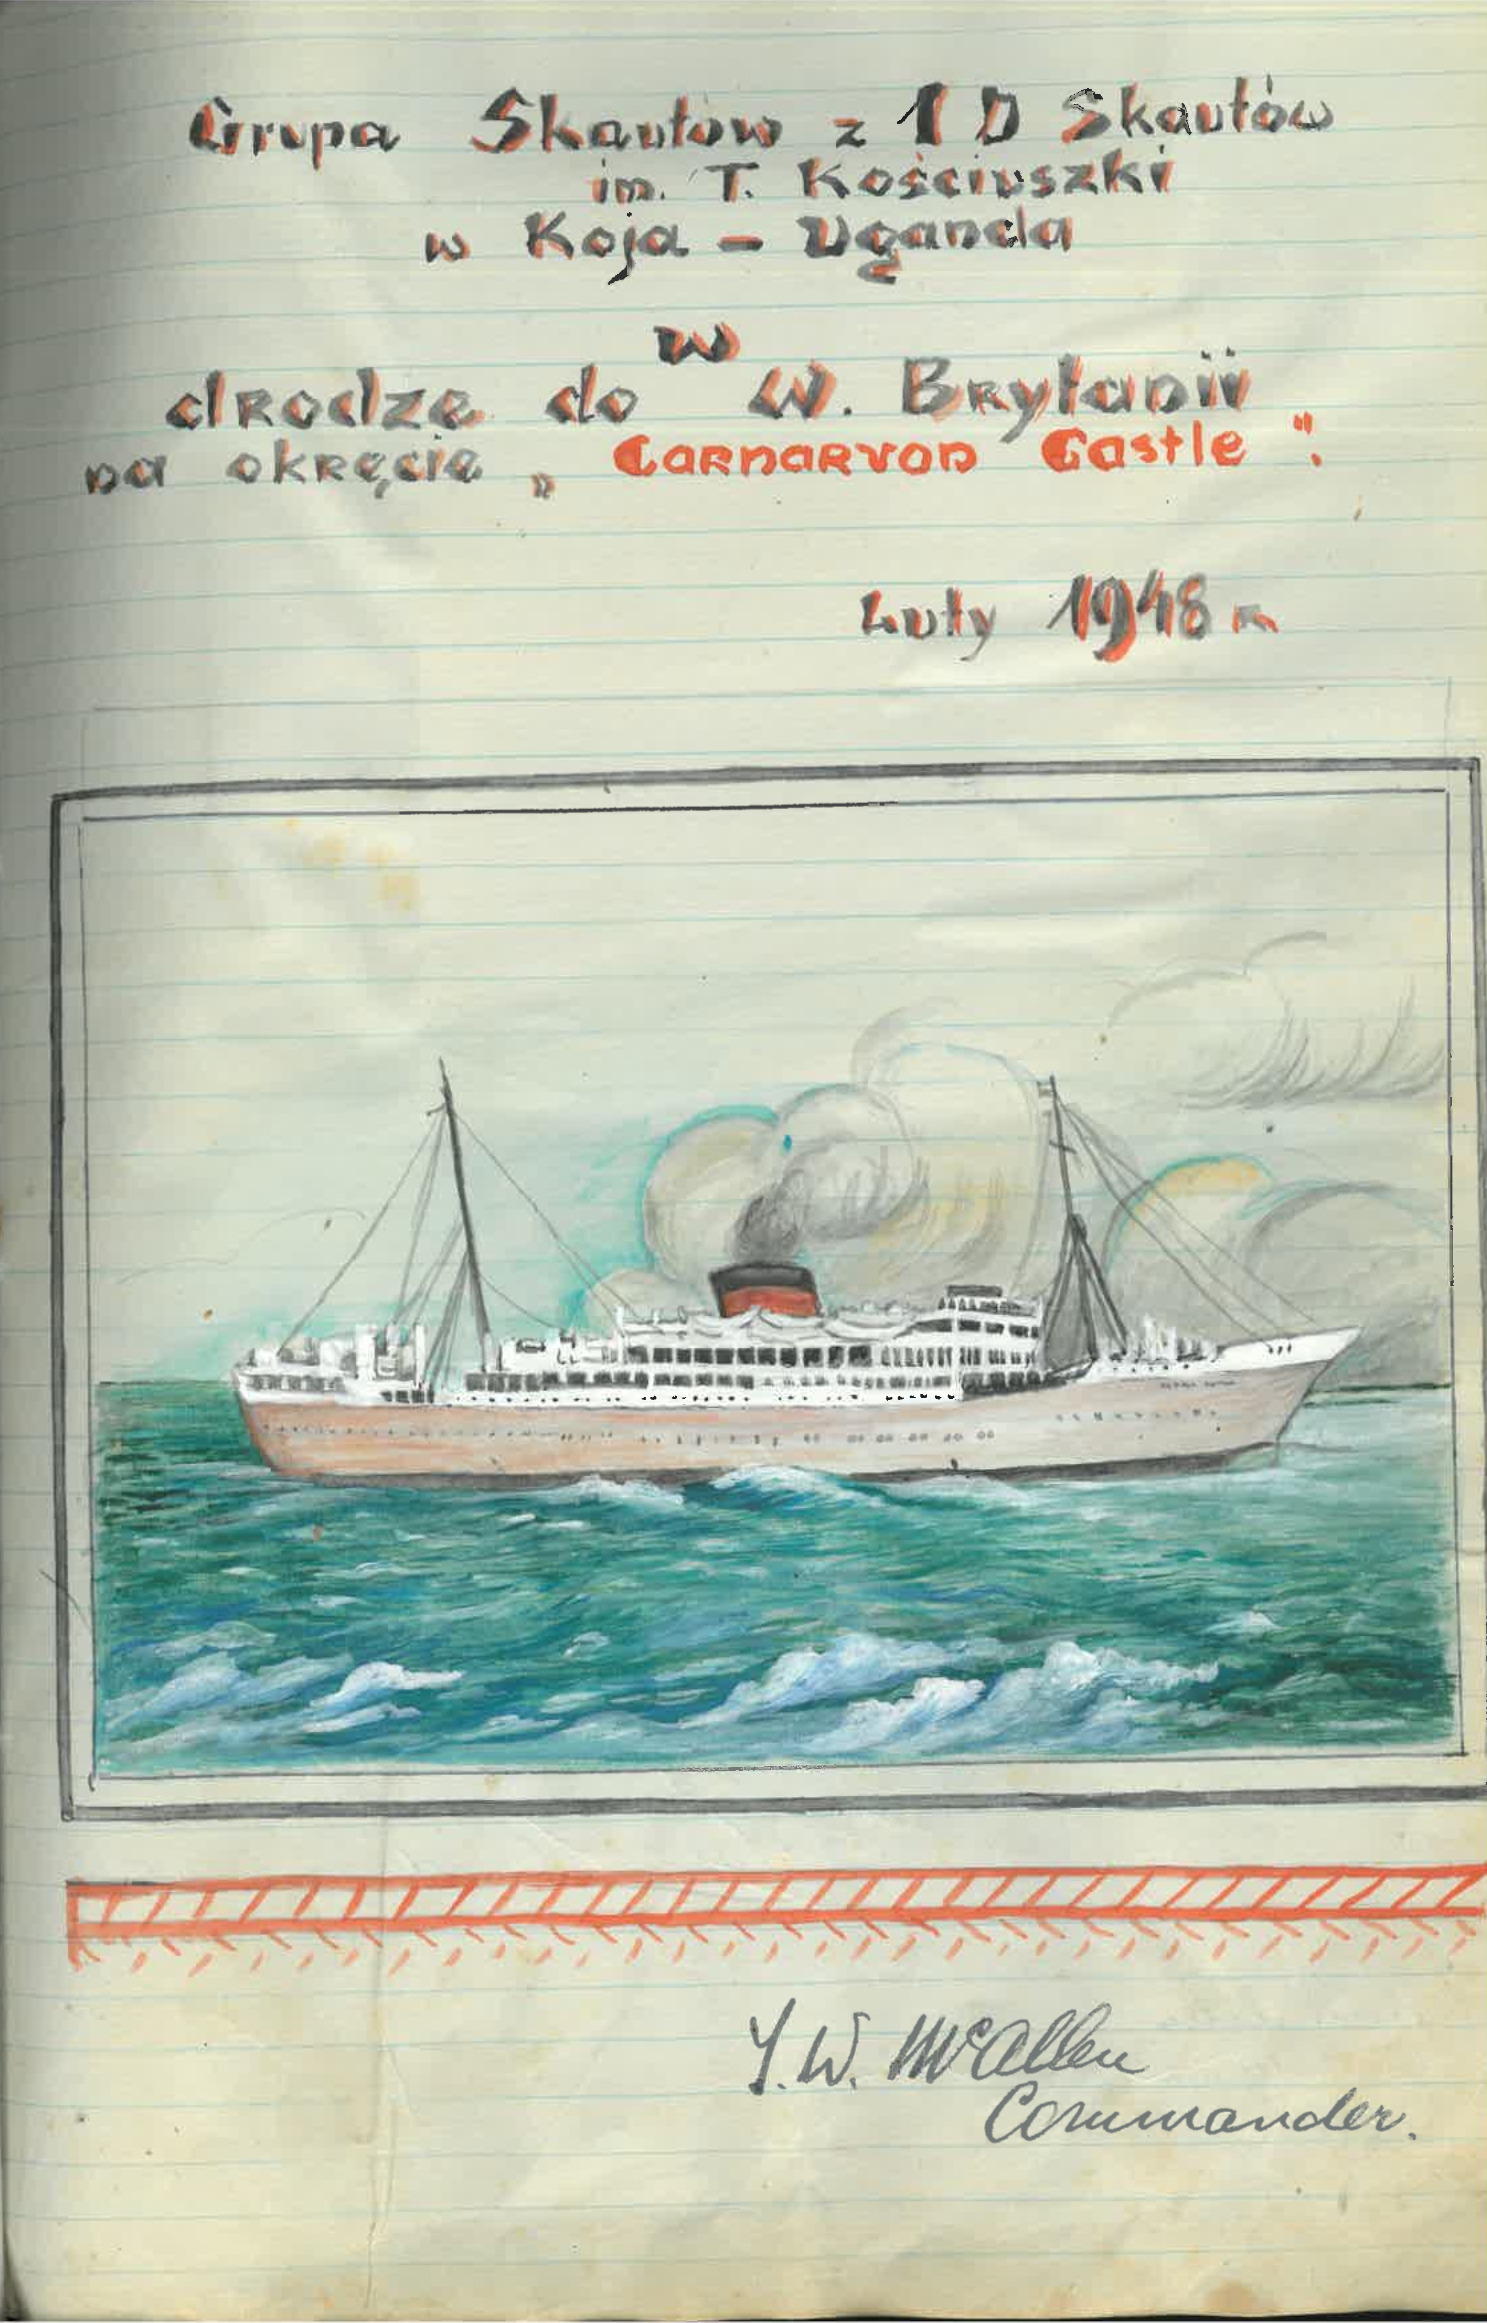 Grupa Skautow z 1 D Skautów
im. T. Kościuszki
w Koja - Uganda
w
drodze do W. Brytanii
na okręcie „Carnarvon Castle”.
Luty 1948 r.
Y.W. McAllen
Commander.